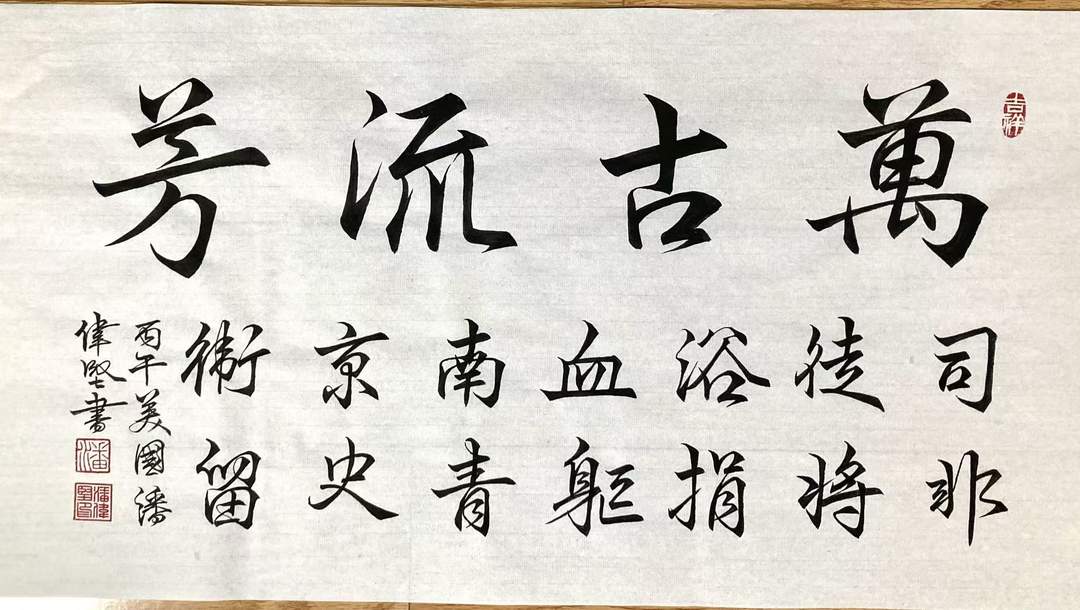 吉祥
萬古流芳
司徒浴血南京衛
非將捐軀青史留
丙午美國潘
偉堅書
潘